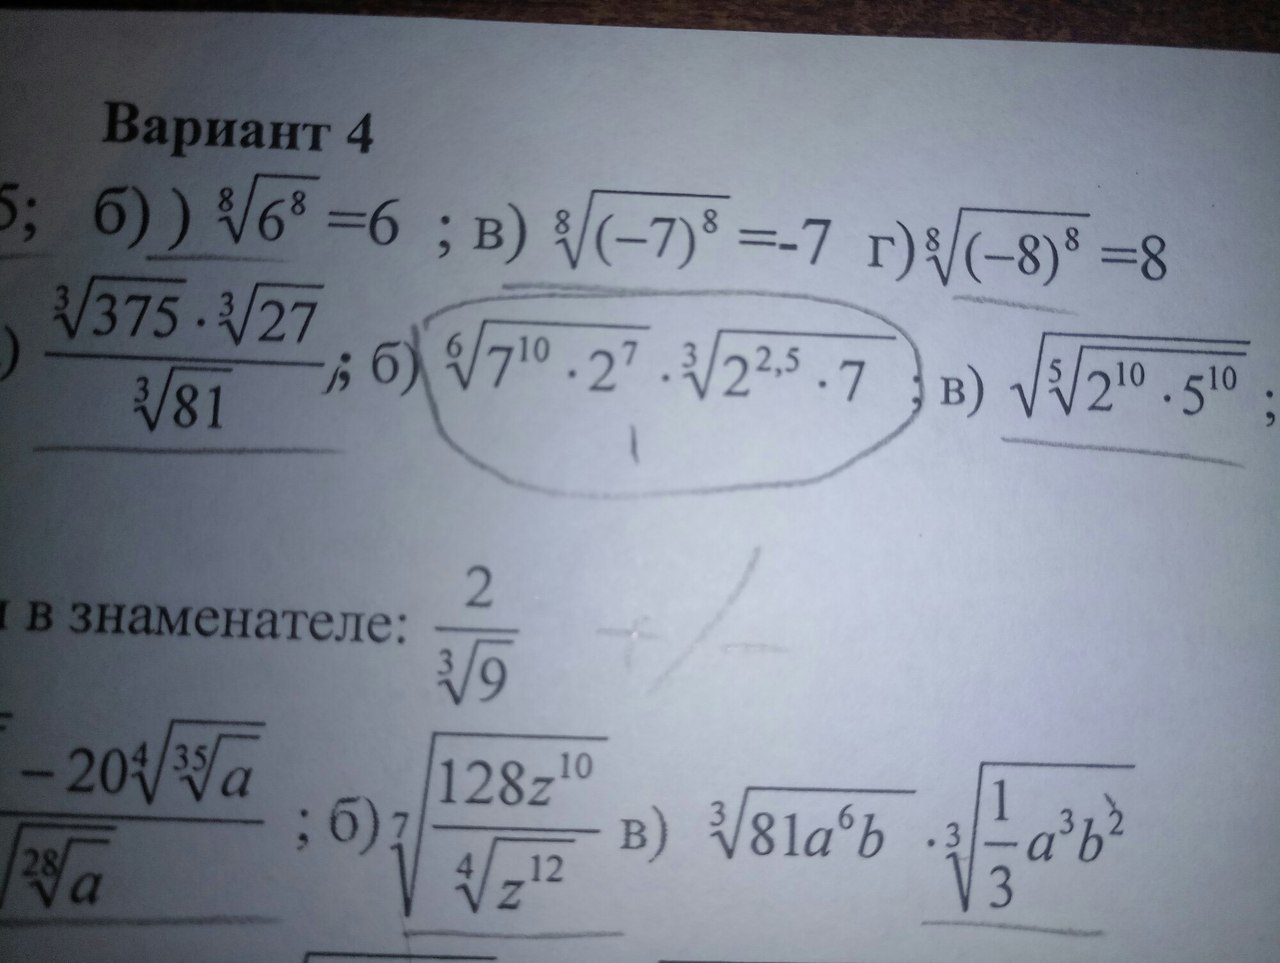 Вариант 4
5; б) ) ⁸√6⁸ =6 ; в) ⁸√(−7)⁸ =-7 г) ⁸√(−8)⁸ =8
) (³√375 · ³√27)/(³√81) ; б) ⁶√(7¹⁰ · 2⁷) · ³√(2^2,5 · 7) ; в) √(⁵√(2¹⁰ · 5¹⁰)) ;
в знаменателе: 2/(³√9) + / −
− 20⁴√(³⁵√a) / √(²⁸√a) ; б) ⁷√(128z¹⁰/(⁴√z¹²)) в) ³√(81a⁶b) · ³√((1/3)a³b²)